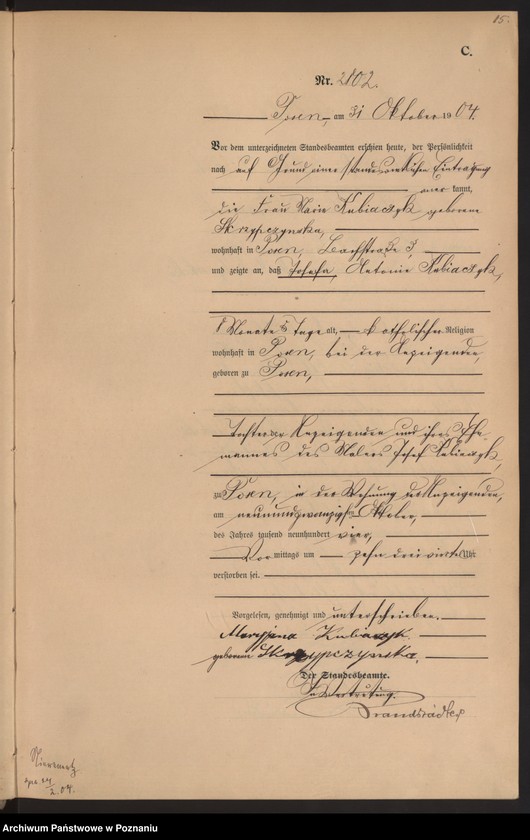 15.
C.
Nr. 2102.
Posen, am 31 Oktober 1904.
Vor dem unterzeichneten Standesbeamten erschien heute, der Persönlichkeit
nach auf Grund einer standesamtlichen Eintragung
aner kannt,
die Frau Maria Kubiaczyk geborene
Skrzypczynska,
wohnhaft in Posen, Bachstraße 3,
und zeigte an, daß Josefa, Antonie Kubiaczyk,
8 Monate 8 Tage alt, katholischer Religion
wohnhaft in Posen, bei der Anzeigenden,
geboren zu Posen,
Tochter der Anzeigenden und ihres Ehe-
mannes des Malers Josef Kubiaczyk,
zu Posen, in der Wohnung der Anzeigenden,
am neunundzwanzigsten Oktober,
des Jahres tausend neunhundert vier,
Vor mittags um zehn dreiviertel Uhr
verstorben sei.
Vorgelesen, genehmigt und unterschrieben.
Maryjana Kubiaczyk
geborene Skrzypczynska.
Der Standesbeamte.
In Vertretung.
Brandstädter
2.04.
Archiwum Państwowe w Poznaniu